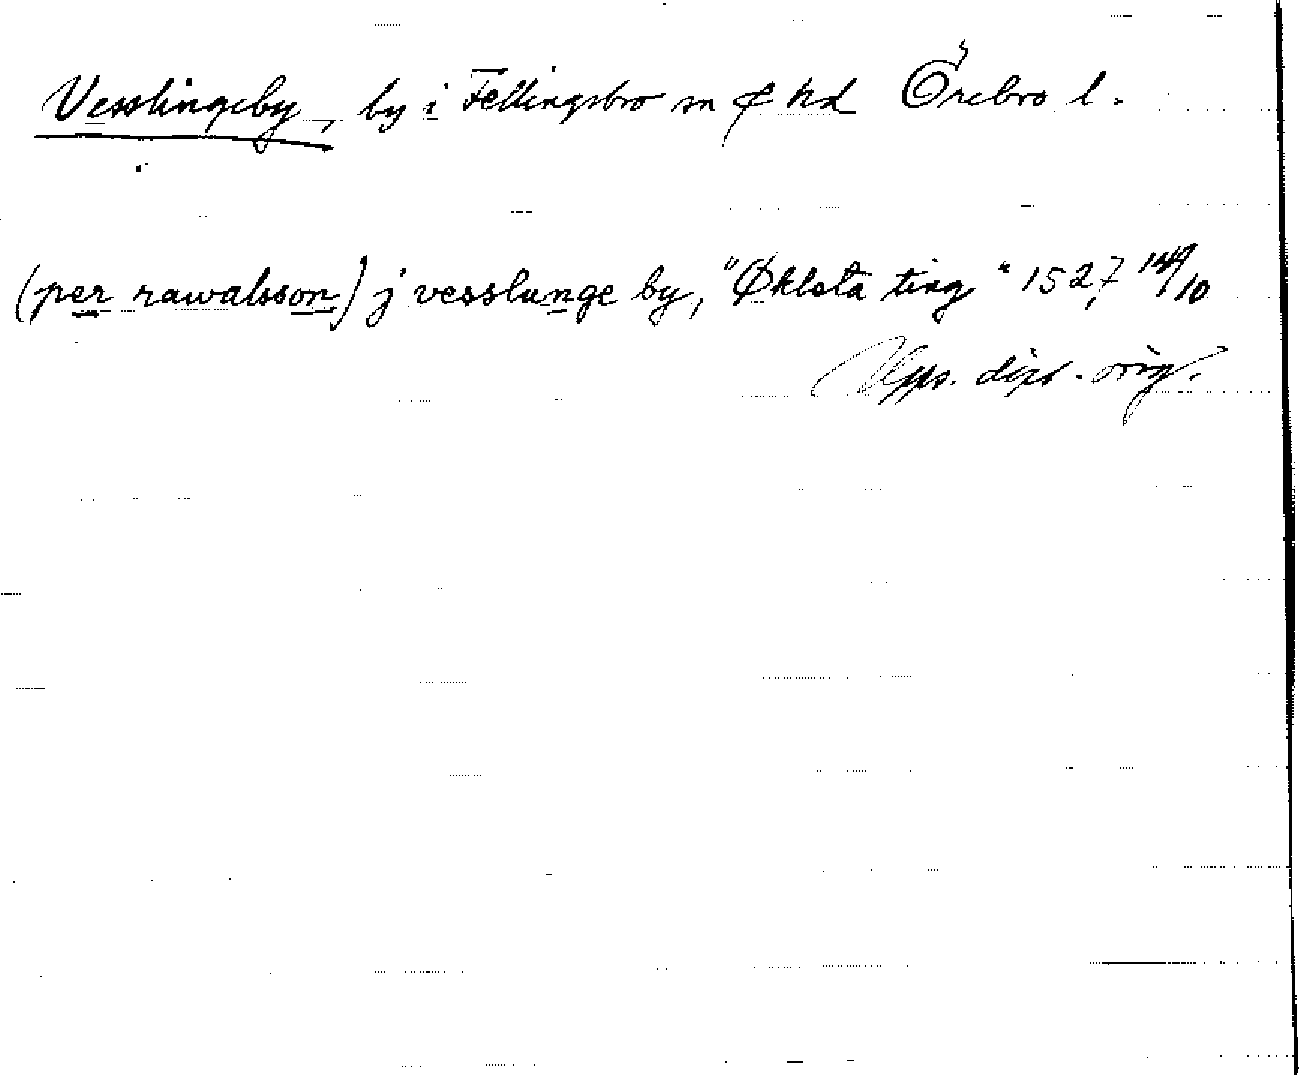 Vesslingeby, by i Fellingsbro sn o hd Örebro l.
(per rawalsson) j vesslunge by, "Øklsta ting" 1527 14/10
Upps. dipl. orig.